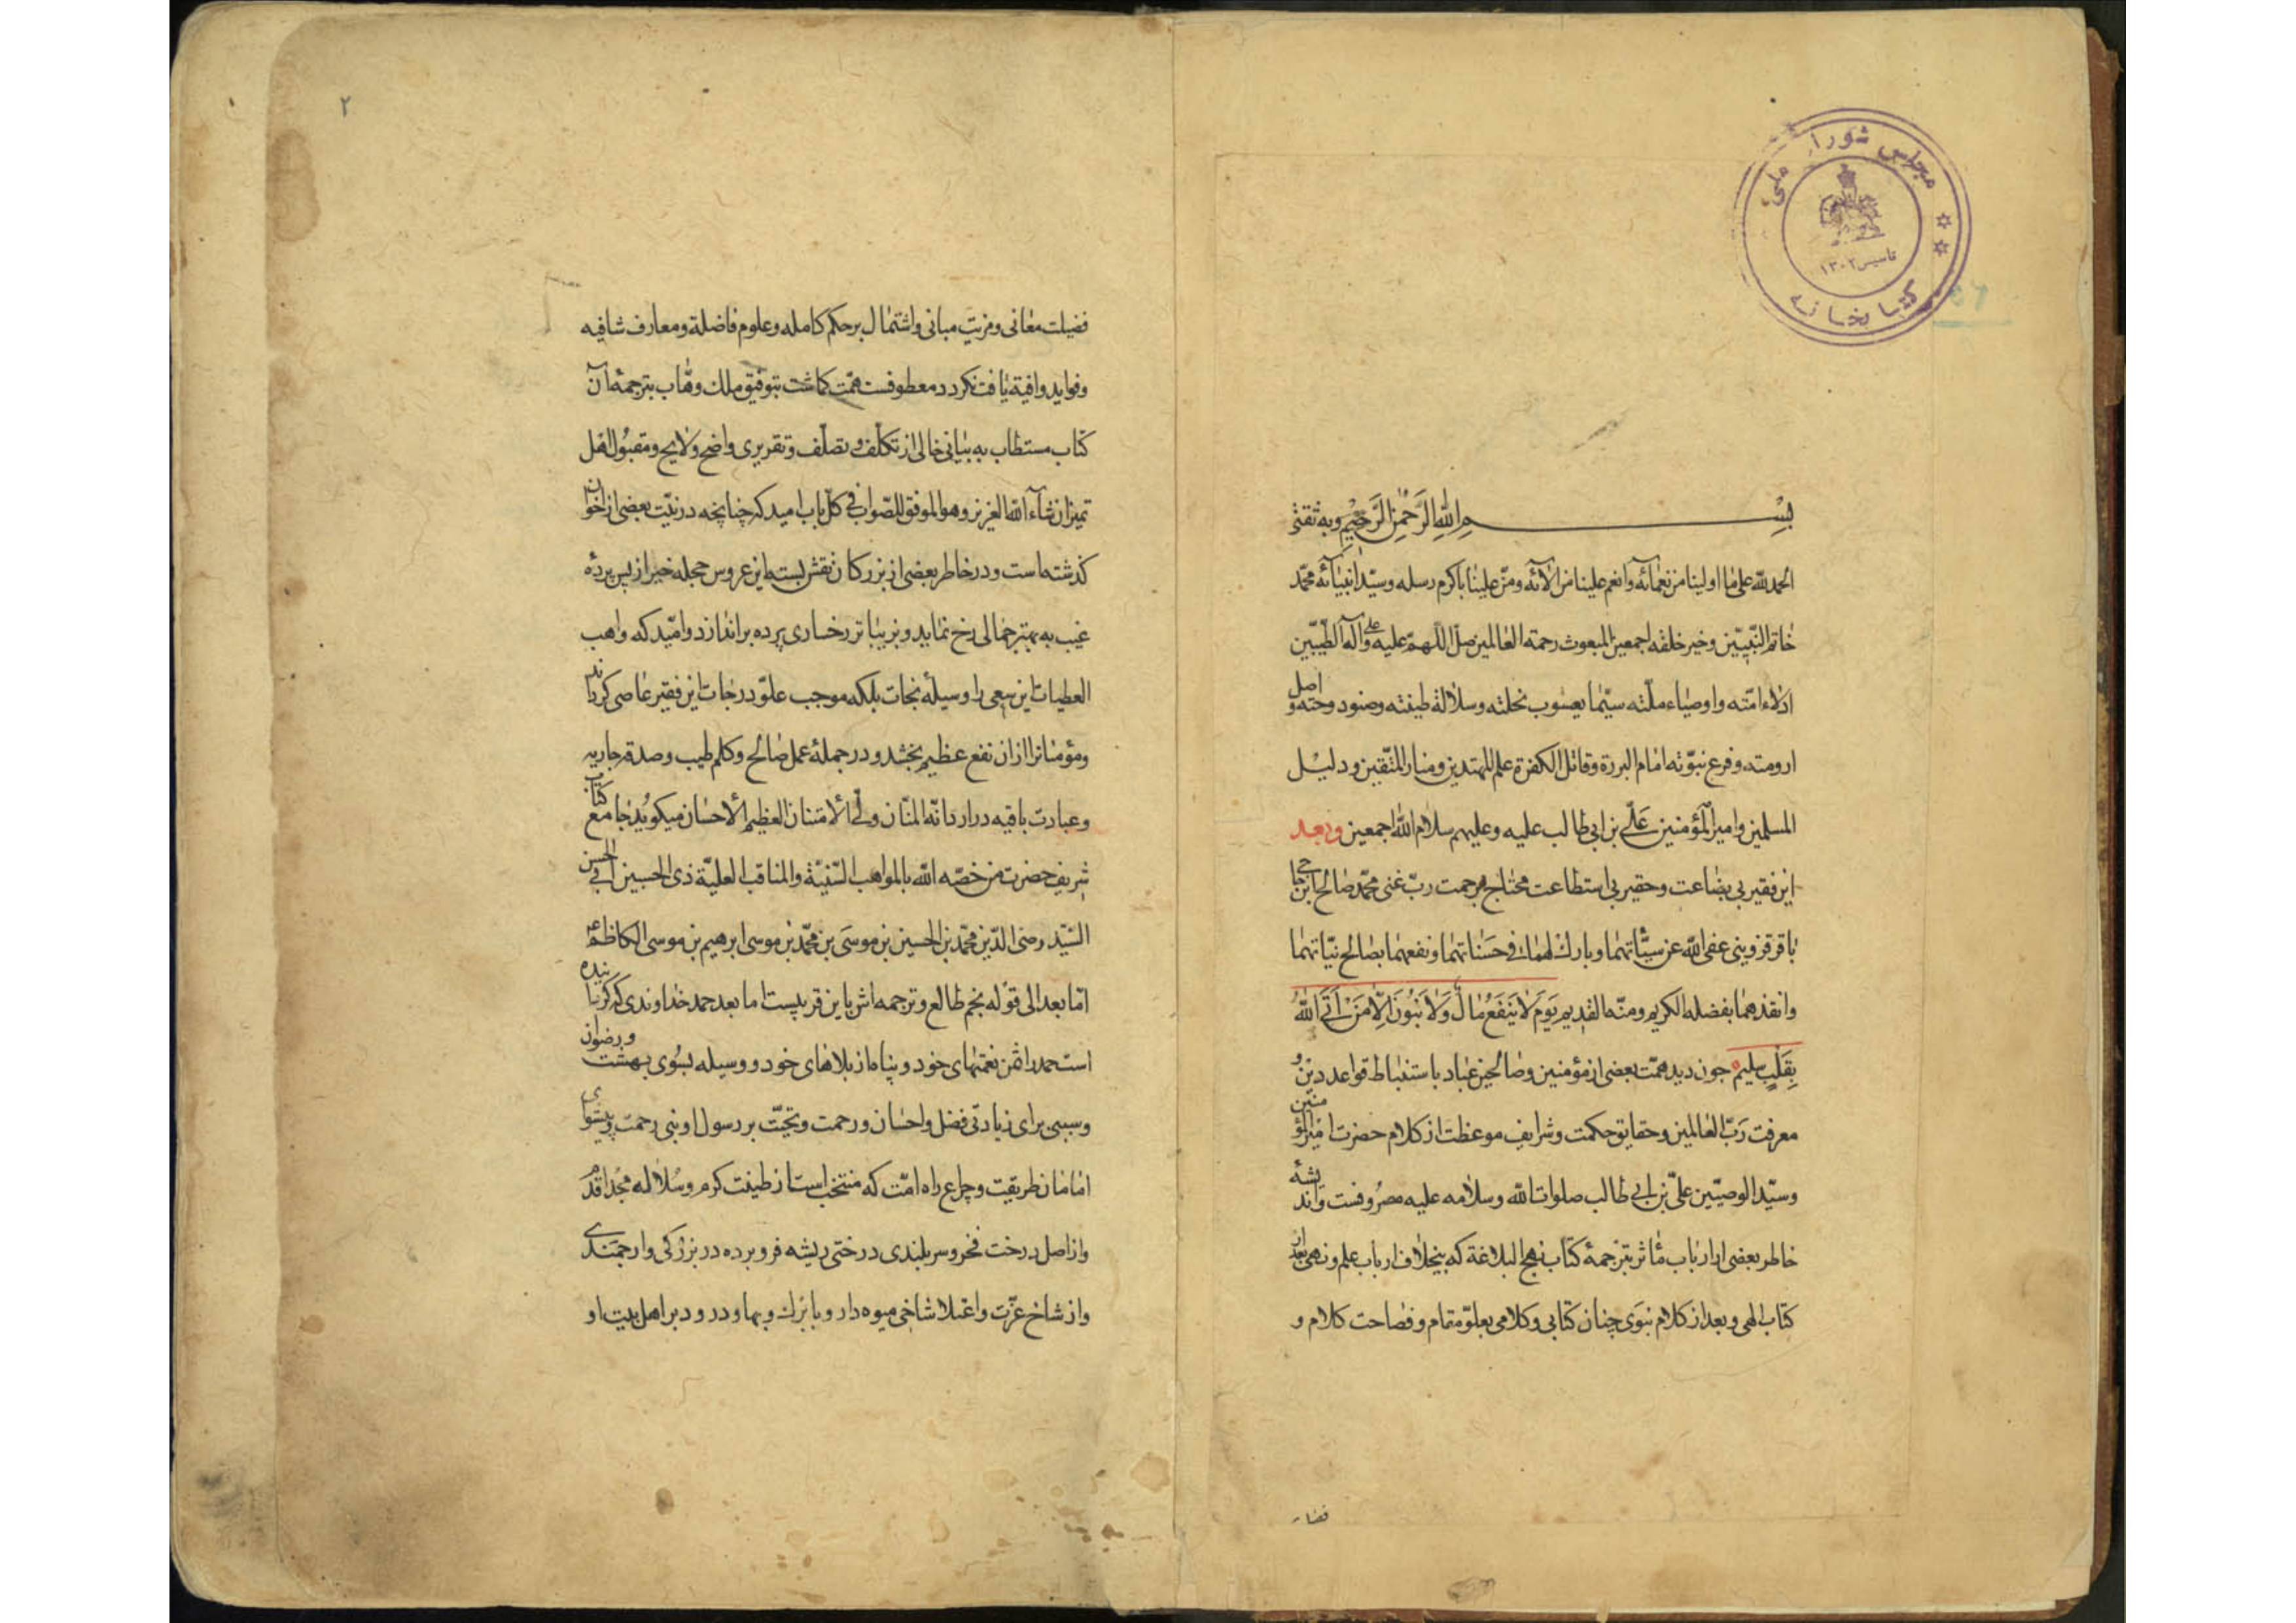 مجلس شورای ملی
تاسیس ۱۳۰۲
کتابخانه
بسم الله الرحمن الرحیم وبه ثقتی
الحمدلله علی ما اولینا من نعمائه وانعم علینا من آلائه ومن علینا باکرم رسله وسید انبیائه محمد
خاتم النبیین وخیر خلقه اجمعین المبعوث رحمة العالمین صل اللهم علیه وعلی آله الطیبین
ادلاء امته واوصیاء ملته سیما یعسوب نحلته وسلالة طینته وصنود وحته و اصل
ارومته وفرع نبوته امام البررة وقاتل الکفرة علم المهتدین ومنار المتقین ودلیل
المسلمین وامیرالمؤمنین علی بن ابی طالب علیه وعلیهم سلام الله اجمعین وبعد
این فقیر بی بضاعت وحقیر بی استطاعت محتاج مرحمت رب غنی محمد صالح ابن حاجی
باقر قزوینی عفی الله عن سیئاتهما وبارک لهما فی حسناتهما ونفعهما بصالح نیاتهما
وانقذهما بفضله الکریم ومنه القدیم یَوْمَ لَا یَنْفَعُ مَالٌ وَلَا بَنُونَ اِلَّا مَنْ اَتَی اللّٰهَ
بِقَلْبٍ سلیم چون دید همت بعضی از مؤمنین وصالحین عباد باستنباط قواعد دین و
معرفت رب العالمین وحقایق حکمت وشرایف موعظت از کلام حضرت امیرالمؤمنین
وسید الوصیین علی بن ابی طالب صلوات الله وسلامه علیه مصروفست واندیشه
خاطر بعضی از ارباب مآثر بترجمهٔ کتاب نهج البلاغة که بیخلاف ارباب علم ونهی بعد از
کتاب الهی وبعد از کلام نبوی چنان کتابی وکلامی بعلو مقام وفصاحت کلام و
۲
فضیلت معانی ومزیت مبانی واشتمال بر حکم کامله وعلوم فاضلة ومعارف شافیه
وفواید وافیة یافت نکردد معطوفست همت کماشت بتوفیق ملک وهاب بترجمهٔ آن
کتاب مستطاب به بیانی خالی از تکلف وتصلف وتقریری واضح ولایح ومقبول اهل
تمیز ان شاء الله العزیز وهو الموفق للصواب فی کل باب امید که چنانچه در نیت بعضی از اخوان
کذشته است ودر خاطر بعضی از بزرکان نقش بسته این عروس حجله خیر از پس پرده
غیب به بهتر جمالی رخ نماید وبزیباتر رخساری پرده براندازد وامید که واهب
العطیات این سعی را وسیلهٔ نجات بلکه موجب علو درجات این فقیر عاصی کرداند
ومؤمنانرا ازان نفع عظیم بخشد ودر جملهٔ عمل صالح وکلم طیب وصدقه جاریه
وعبادت باقیه درارد انه المنان ولی الامتنان العظیم الاحسان میکوید جامع کتاب
شریف حضرت من خصه الله بالمواهب السنیة والمناقب العلیة ذی الحسبین ابی الحسن
السید رضی الدین محمد بن الحسین بن موسی بن محمد بن موسی ابرهیم بن موسی الکاظم
اما بعد الی قوله نجم طالع وترجمه اش باین قریبست اما بعد حمد خداوندی که کرداننده
است حمد را ثمن نعمتهای خود وپناه از بلاهای خود ووسیله بسوی بهشت ورضوان
وسببی برای زیادتی فضل واحسان ورحمت وتحیت بر رسول او نبی رحمت وپیشوای
امامان طریقت وچراع راه امت که منتخب است از طینت کرم وسلاله مجد اقدم
واز اصل درخت فخر وسربلندی درختی ریشه فرو برده در بزرکی وارجمندی
واز شاخ عزت واعتلا شاخی میوه دار وبا برک وبها ودرود بر اهل بیت او